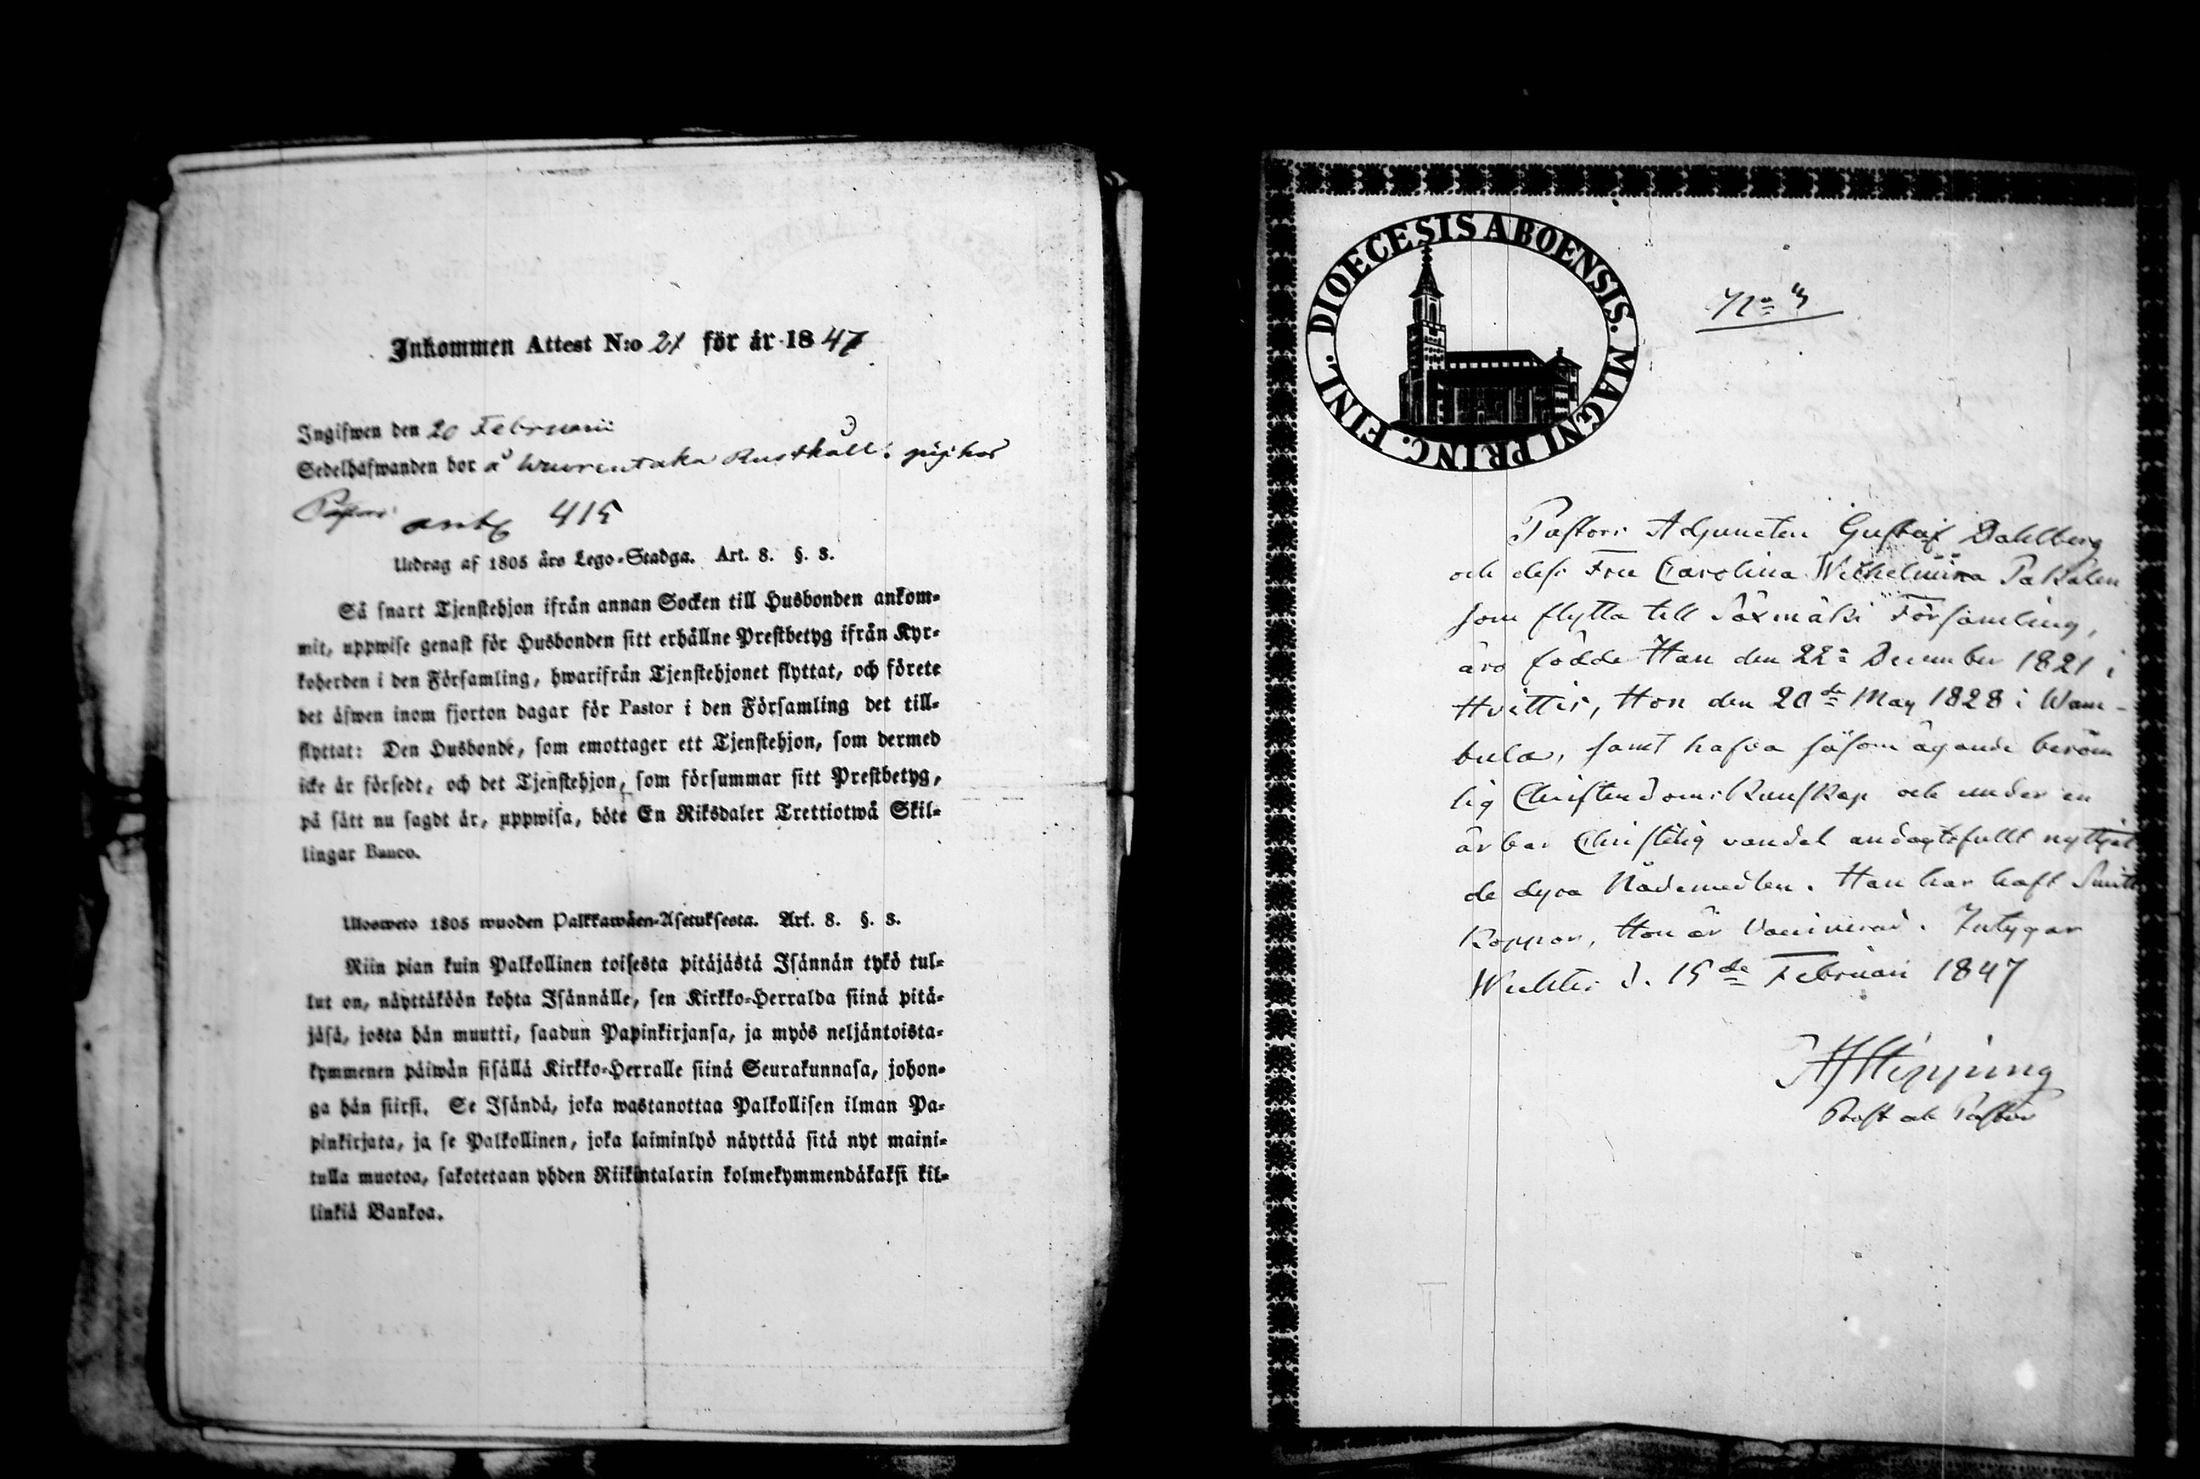 Inkommen Attest N:o 21 för år 1847
Ingifwen den 20 Februarii
Sedelhafwanden bor å Rusthåll
415
Utdrag af 1805 års Lego-Stadga. Art. 8. §. 8.
Så snart Tjenstehjon ifrån annan Socken till Husbonden ankom-
mit, uppwise genast för Husbonden sitt erhållne Prestbetyg ifrån Kyr-
koherden i den Församling, hwarifrån Tjenstehjonet flyttat, och förete
det äfwen inom fjorton dagar för Pastor i den Församling det till-
flyttat: Den Husbonde, som emottager ett Tjenstehjon, som dermed
icke är försedt, och det Tjenstehjon, som försummar sitt Prestbetyg,
på sätt nu sagdt är, uppwisa, böte En Riksdaler Trettiotwå Skil-
lingar Banco.
Ulosweto 1805 wuoden Palkkawäen-Asetuksesta. Art. 8. §. 8.
Niin pian kuin Palkollinen toisesta pitäjästä Isännän tykö tul-
lut on, näyttäköön kohta Isännälle, sen Kirkko-Herralda siinä pitä-
jäsä, josta hän muutti, saadun Papinkirjansa, ja myös neljäntoista-
kymmenen päiwän sisällä Kirkko-Herralle siinä Seurakunnasa, johon-
ga hän siirsi. Se Isändä, joka wastanottaa Palkollisen ilman Pa-
pinkirjata, ja se Palkollinen, joka laiminlyö näyttää sitä nyt maini-
tulla muotoa, sakotetaan yhden Riikintalarin kolmekymmendäkaksi kil-
linkiä Bankoa.
DIOECESIS ABOENSIS. MAGNI PRINC. FINL.
No 3
Pastors Adjuncten Gustaf Dahlberg
och dess Fru Carolina Wilhelmina
som flytta till Säxmäki Församling,
äro födde Han den 22 December 1821 i
Hvittis, Hon den 20de May 1828 i Wam-
bula, samt hafva såsom ägande beröm
lig Christendoms Kunskap och under en
ärbar Christelig vandel andagtsfullt nyttjat
de dyra Nådemedlen. Han har haft Smitt
Koppor, Hon är Vaccinerad. Intygar
d. 15de Februari 1847
Prost och Pastor